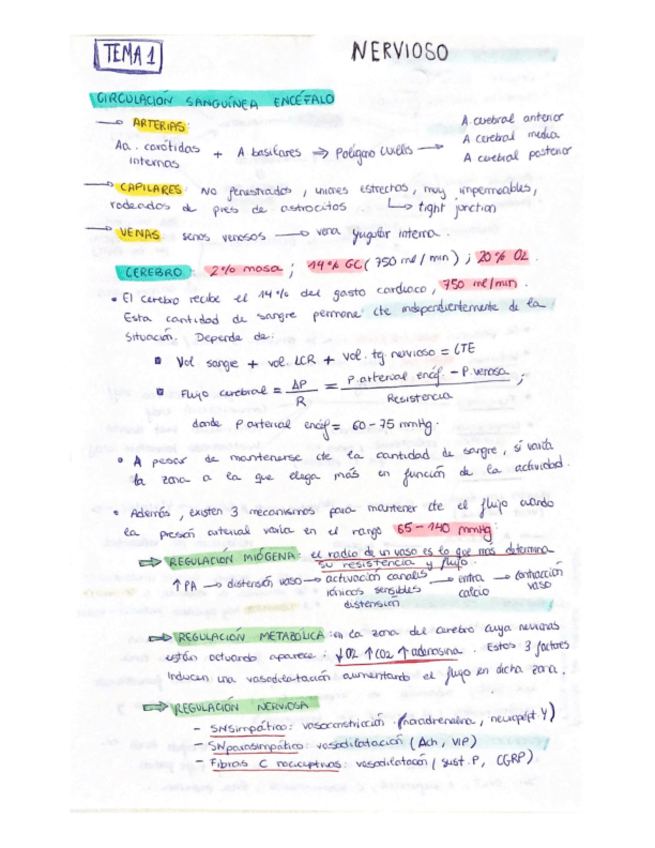 TEMA 1
NERVIOSO
CIRCULACIÓN SANGUÍNEA ENCÉFALO
→ ARTERIAS:
Aa. carótidas internas + A basilares ⇒ Polígono Willis →
A. cerebral anterior
A cerebral media
A cerebral posterior
→ CAPILARES: No fenestrados, uniones estrechas, muy impermeables,
rodeados de pies de astrocitos. ↳ tight junction
→ VENAS: senos venosos → vena yugular interna.
CEREBRO: 2% masa; 14% GC (750 ml/min); 20% O2.
• El cerebro recibe el 14% del gasto cardíaco, 750 ml/min.
Esta cantidad de sangre permane cte independientemente de la
situación. Depende de:
▪ Vol sangre + vol. LCR + vol. tg. nervioso = CTE
▪ Flujo cerebral = ΔP / R = P. arterial encéf. - P. venosa / Resistencia ;
donde P arterial encéf = 60-75 mmHg.
• A pesar de mantenerse cte la cantidad de sangre, sí varía
la zona a la que llega más en función de la actividad.
• Además, existen 3 mecanismos para mantener cte el flujo cuando
la presión arterial varía en el rango 65-140 mmHg:
⇒ REGULACIÓN MIÓGENA: el radio de un vaso es lo que más determina
su resistencia y flujo.
↑PA → distensión vaso → activación canales iónicos sensibles distensión → entra calcio → contracción vaso
⇒ REGULACIÓN METABÓLICA: en la zona del cerebro cuya neuronas
están actuando aparece: ↓O2 ↑CO2 ↑adenosina. Estos 3 factores
inducen una vasodilatación aumentando el flujo en dicha zona.
⇒ REGULACIÓN NERVIOSA
- SNSimpático: vasoconstricción (noradrenalina, neuropépt Y)
- SNparasimpático: vasodilatación (Ach, VIP)
- Fibras C nociceptivas: vasodilatación (sust. P, CGRP)